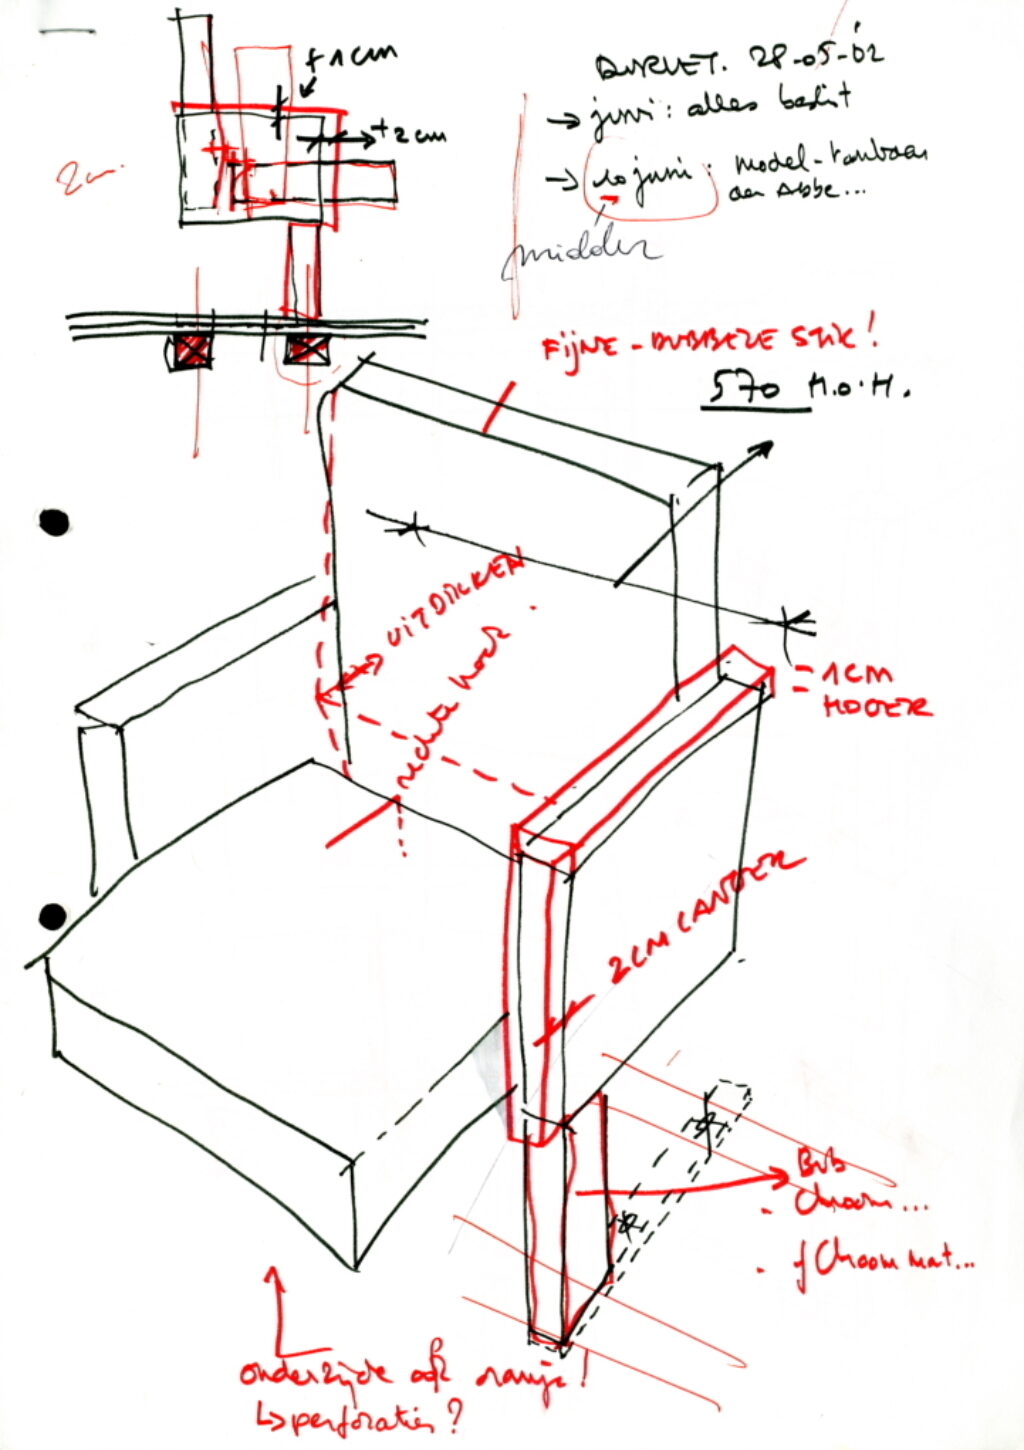 +1cm
+2cm
2cm
DURLET. 28-05-02
→ juni: alles beslist
→ 10 juni: model-
aan Abbe...
midden
FIJNE-DUBBELE STIK!
570 H.O.H.
UITDIKKEN
rechte hoek
= 1CM
HOGER
2CM LANGER
Bub
Chroom...
. of Chroom mat...
onderzijde ook oranje!
↳ perforaties?